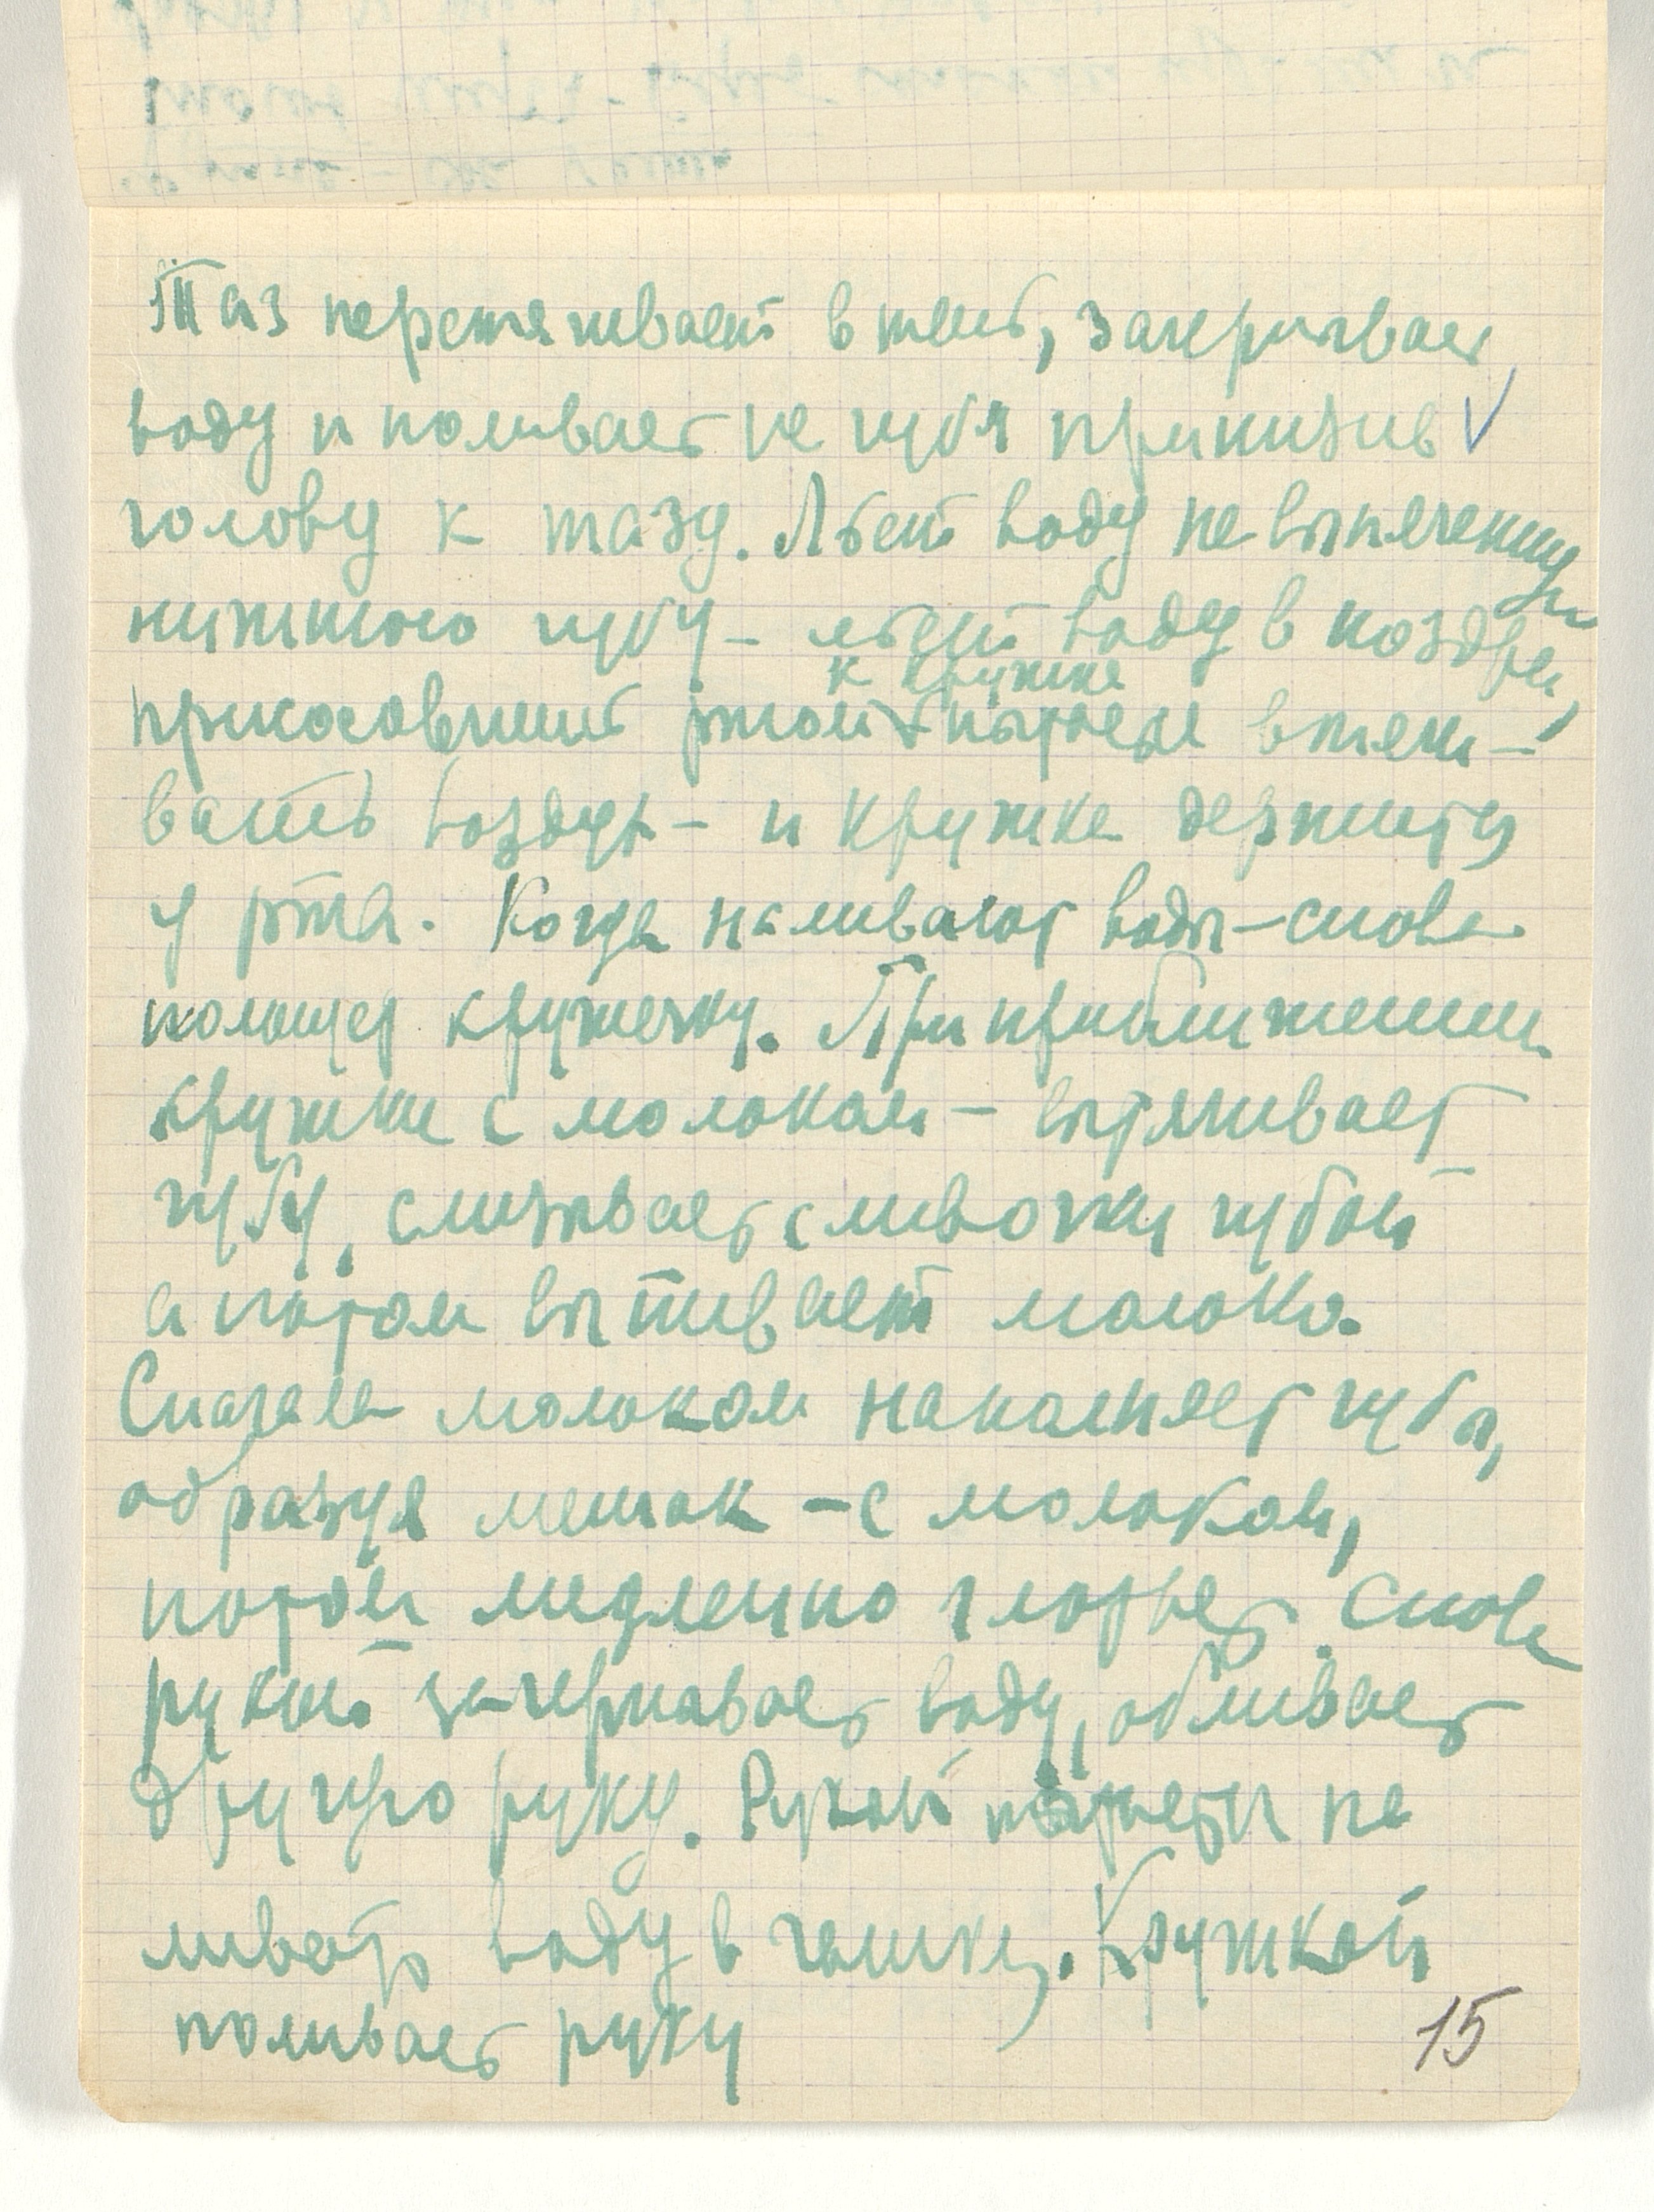 Таз перетягивает в тень, зачерпывает
воду и поливает на губы приблизив V
голову к тазу. Льет воду на выпяченную
нижнюю губу – льет воду в ноздри,
к кружке
прикоснувшись ртом пытаясь втяги-
вать воздух – и кружка держится
у рта. Когда наливают воды – снова
полощет кружечку. При приближении
кружки с молоком – вытягивает
губу, слизывает сливочки губой
а потом выпивает молоко.
Сначала молоком наполняет губы,
образуя мешок – с молоком,
потом медленно глотает. Снова
рукой зачерпывает воду, обливает
другую руку. Рукой пытается на
ливать воду в чашку. Кружкой
поливает руку
15